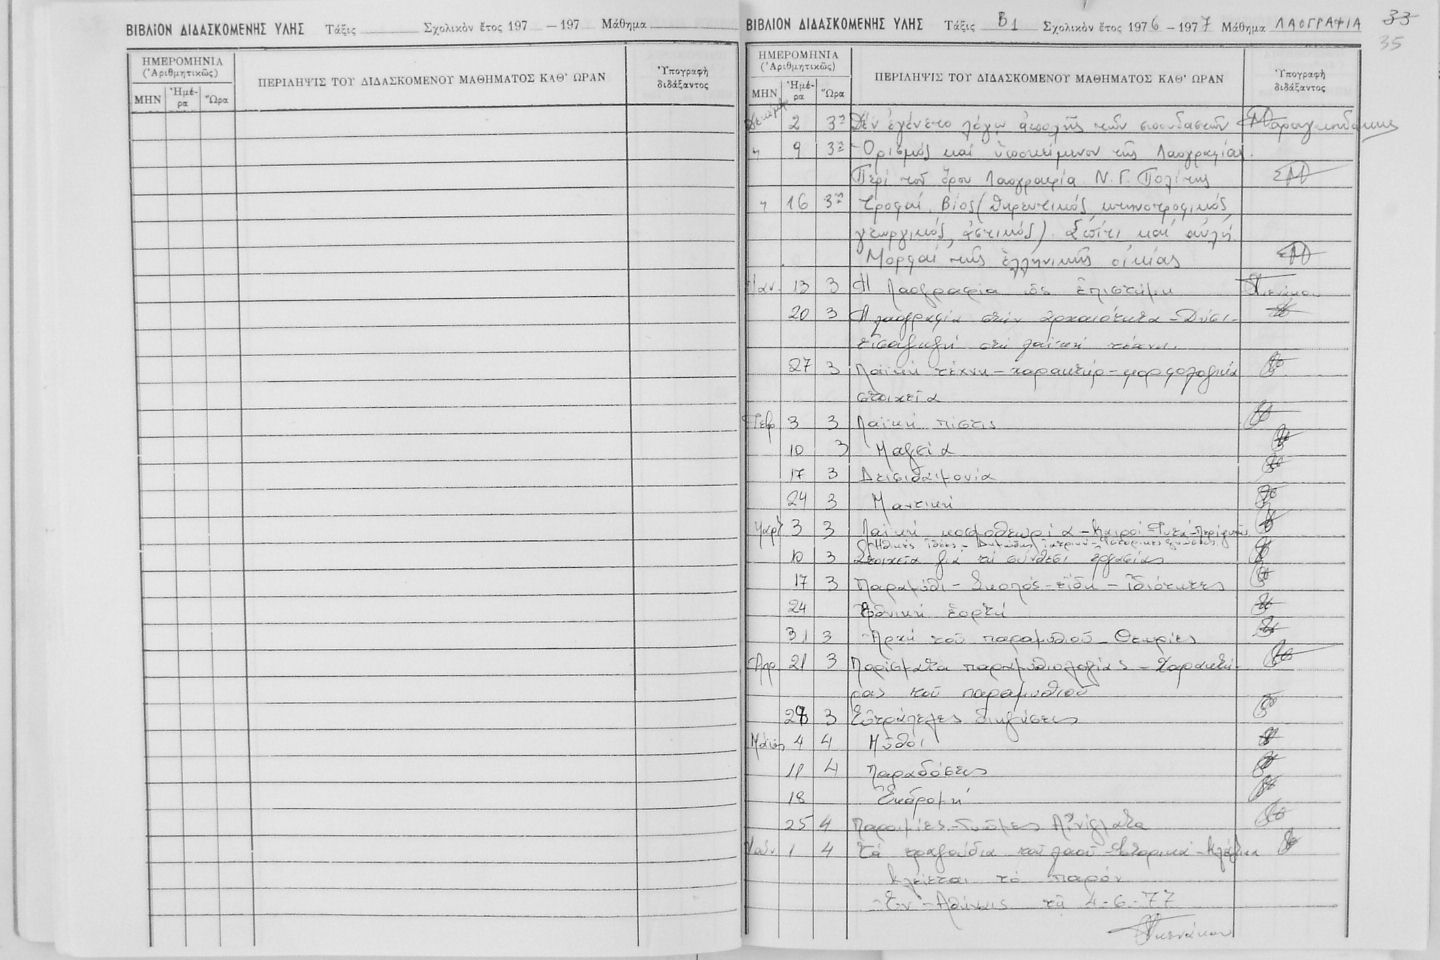 ΒΙΒΛΙΟΝ ΔΙΔΑΣΚΟΜΕΝΗΣ ΥΛΗΣ Τάξις Σχολικὸν ἔτος 197 — 197 Μάθημα
ΗΜΕΡΟΜΗΝΙΑ
(Ἀριθμητικῶς)
ΜΗΝ Ἡμέρα Ὥρα
ΠΕΡΙΛΗΨΙΣ ΤΟΥ ΔΙΔΑΣΚΟΜΕΝΟΥ ΜΑΘΗΜΑΤΟΣ ΚΑΘ' ΩΡΑΝ
Ὑπογραφὴ
διδάξαντος
33
35
ΒΙΒΛΙΟΝ ΔΙΔΑΣΚΟΜΕΝΗΣ ΥΛΗΣ Τάξις Β1 Σχολικὸν ἔτος 1976 — 1977 Μάθημα ΛΑΟΓΡΑΦΙΑ
ΗΜΕΡΟΜΗΝΙΑ
(Ἀριθμητικῶς)
ΜΗΝ Ἡμέρα Ὥρα
ΠΕΡΙΛΗΨΙΣ ΤΟΥ ΔΙΔΑΣΚΟΜΕΝΟΥ ΜΑΘΗΜΑΤΟΣ ΚΑΘ' ΩΡΑΝ
Ὑπογραφὴ
διδάξαντος
2 3η Δέν ἐγένετο λόγῳ ἀποχῆς τῶν σπουδαστῶν
" 9 3η Ὁρισμός καί ὑποκείμενον τῆς Λαογραφίας.
Περί τοῦ ὅρου Λαογραφία Ν. Γ. Πολίτης
" 16 3η Τροφαί, Βίος (θηρευτικός, κτηνοτροφικός,
γεωργικός, ἀστικός). Σπίτι καί αὐλή.
Μορφαί τῆς ἑλληνικῆς οἰκίας
Ἰαν. 13 3 Ἡ Λαογραφία ὡς ἐπιστήμη
20 3 Ἡ λαογραφία στήν ἀρχαιότητα - Δύσι -
εἰσαγωγή στή λαϊκή τέχνη.
27 3 Λαϊκή τέχνη - χαρακτήρ - μορφολογικά
στοιχεῖα
Φεβρ 3 3 Λαϊκή πίστις
10 3 Μαγεία
17 3 Δεισιδαιμονία
24 3 Μαντική
Μαρτ 3 3 Λαϊκή κοσμοθεωρία - Καιροί - Φυτά
10 3 Στοιχεῖα γιά τή σύνθεσι ἐργασίας
17 3 Παραμύθι - Σκοπός - εἴδη - ἰδιότητες
24 Ἐθνική ἑορτή
31 3 Ἀρχή τοῦ παραμυθιοῦ - Θεωρίες
Απρ 21 3 Πορίσματα παραμυθιολογίας - Χαρακτῆ-
ρας τοῦ παραμυθιοῦ
28 3 Εὐτράπελες διηγήσεις
Μάϊος 4 4 Μῦθοι
11 4 Παραδόσεις
18 Ἐκδρομή
25 4 Παροιμίες - Γνῶμες Αἰνίγματα
Ἰούν 1 4 Τά τραγούδια τοῦ λαοῦ - Ἱστορικά - Κλέφτικα
Κλείεται τό παρόν
Ἐν Ἀθήναις τῇ 4-6-77